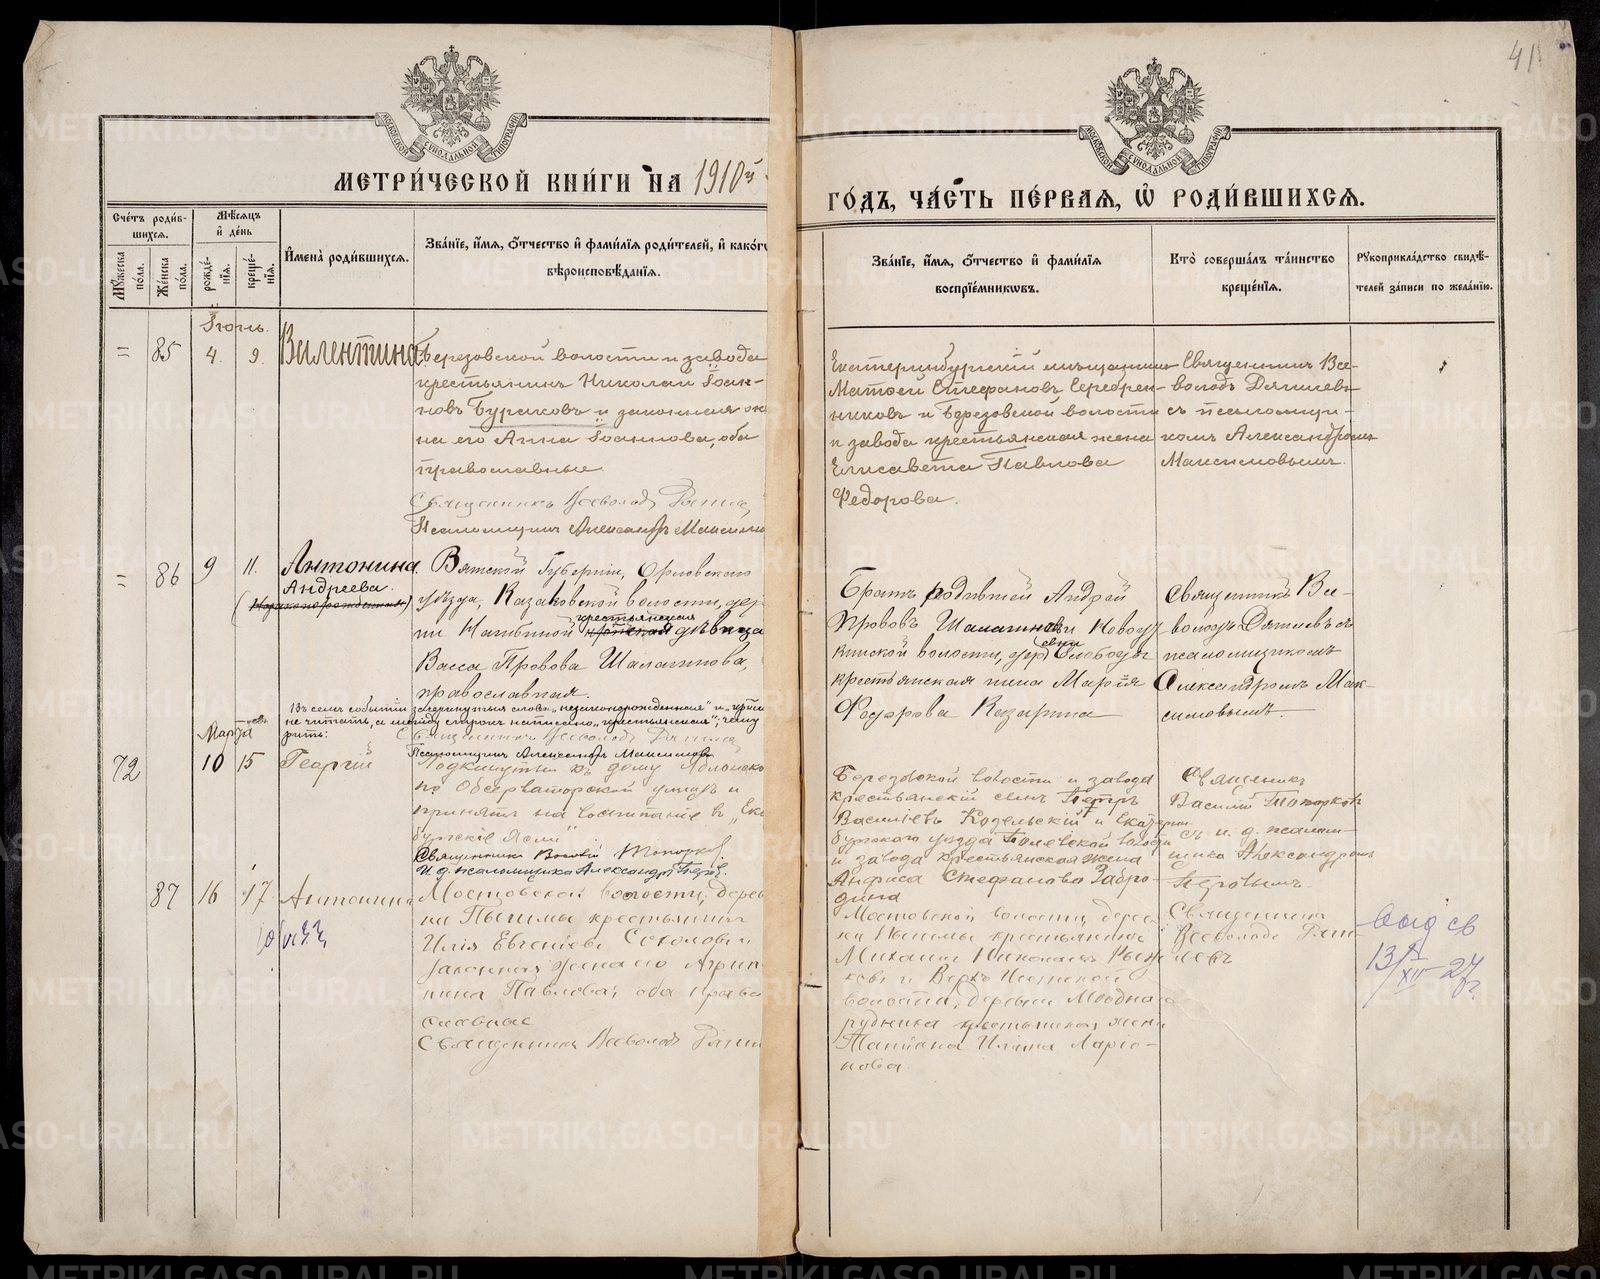 41
МОСКОВСКОЙ СѴНОДАЛЬНОЙ ТИПОГРАФІИ
МОСКОВСКОЙ СѴНОДАЛЬНОЙ ТИПОГРАФІИ
МЕТРИ́ЧЕСКОЙ КНИ́ГИ НА 1910й
ГО́ДЪ, ЧА́СТЬ ПЕ́РВАѦ, Ѽ РОДИ́ВШИХСѦ.
Счётъ роди́вшихсѧ.
Мѣ́сѧцъ и҆ де́нь
И҆мена̀ роди́вшихсѧ.
Зва́нїе, и҆́мѧ, ѻ҆́тчество и҆ фами́лїѧ роди́телей, и҆ како́гѡ
вѣроисповѣ́данїѧ.
Мꙋ́жеска по́ла.
Же́нска по́ла.
рожде́нїѧ.
креще́нїѧ.
Зва́нїе, и҆́мѧ, ѻ҆́тчество и҆ фами́лїѧ
воспрїе́мникѡвъ.
Кто̀ соверша́лъ та́инство
креще́нїѧ.
Рꙋкоприкла́дство свидѣ́-
телей за́писи по жела́нїю.
Іюнь.
85 4. 9. Валентина
Березовской волости и завода
крестьянинъ Николай Іоан-
новъ Бураковъ и законная же
на его Анна Іоаннова, оба
православные.
Священникъ Всеволодъ
Псаломщикъ Александръ Максимо
Екатеринбургскій мѣщанинъ
Матѳей Стефановъ Серебрен-
никовъ и Березовской волости
и завода крестьянская жена
Елисавета Павлова
Федорова.
Священникъ Все-
володъ Дягилевъ
съ псаломщи-
комъ Александромъ
Максимовымъ.
86 9 11. Антонина
Андреева
(незаконорожденная)
Вятской Губерніи, Орловскаго
уѣзда, Казаковской волости, дер
ни крестьянская дѣвица
Васса Провова Шалагинова,
православная.
Въ семъ событіи зачеркнутыя слова „незаконорожденная" и
не читать, а между строкъ написано „крестьянская",
рить:
Священникъ Всеволодъ
Псаломщикъ Александръ Максимовъ
Братъ родившей Андрей
Прововъ Шалагиновъ и
волости, дер Слободы
крестьянская жена Марія
Федорова Казарина
Священникъ Все-
володъ Дягилевъ съ
псаломщикомъ
Александромъ Мак-
симовымъ.
Марта
72 10 15 Георгій
Подкинутый къ дому
по Обсерваторской улицѣ и
принятъ на воспитаніе въ „Ека
бургскіе Ясли"
Священникъ Василій Топорковъ.
И. д. псаломщика Александръ Перов.
Березовской волости и завода
крестьянскій сынъ Петръ
Васильевъ Козельскій и Екатерин
бургскаго уѣзда Полевской волости
и завода крестьянская жена
Анфиса Стефанова Забро-
дина
Священникъ
Василій Топорковъ
съ и. д. псалом-
щика Александромъ
Перовымъ.
87 16 17. Антонина
Мостовской волости, дерев
ни Пышмы крестьянинъ
Илія Евгеніевъ Соколовъ и
законная жена его Агрип
пина Павлова, оба право
славные
Священникъ Всеволодъ
Мостовской волости, дерев
ни Пышмы крестьянинъ
Михаилъ Николаевъ
ковъ и Верхъ Исетской
волости, деревни Мѣднаго
рудника крестьянская жена
Татіана Ильина Ларіо-
нова.
Священникъ
Всеволодъ Дяги-
левъ
выд св
13/XII-27г.
METRIKI.GASO-URAL.RU